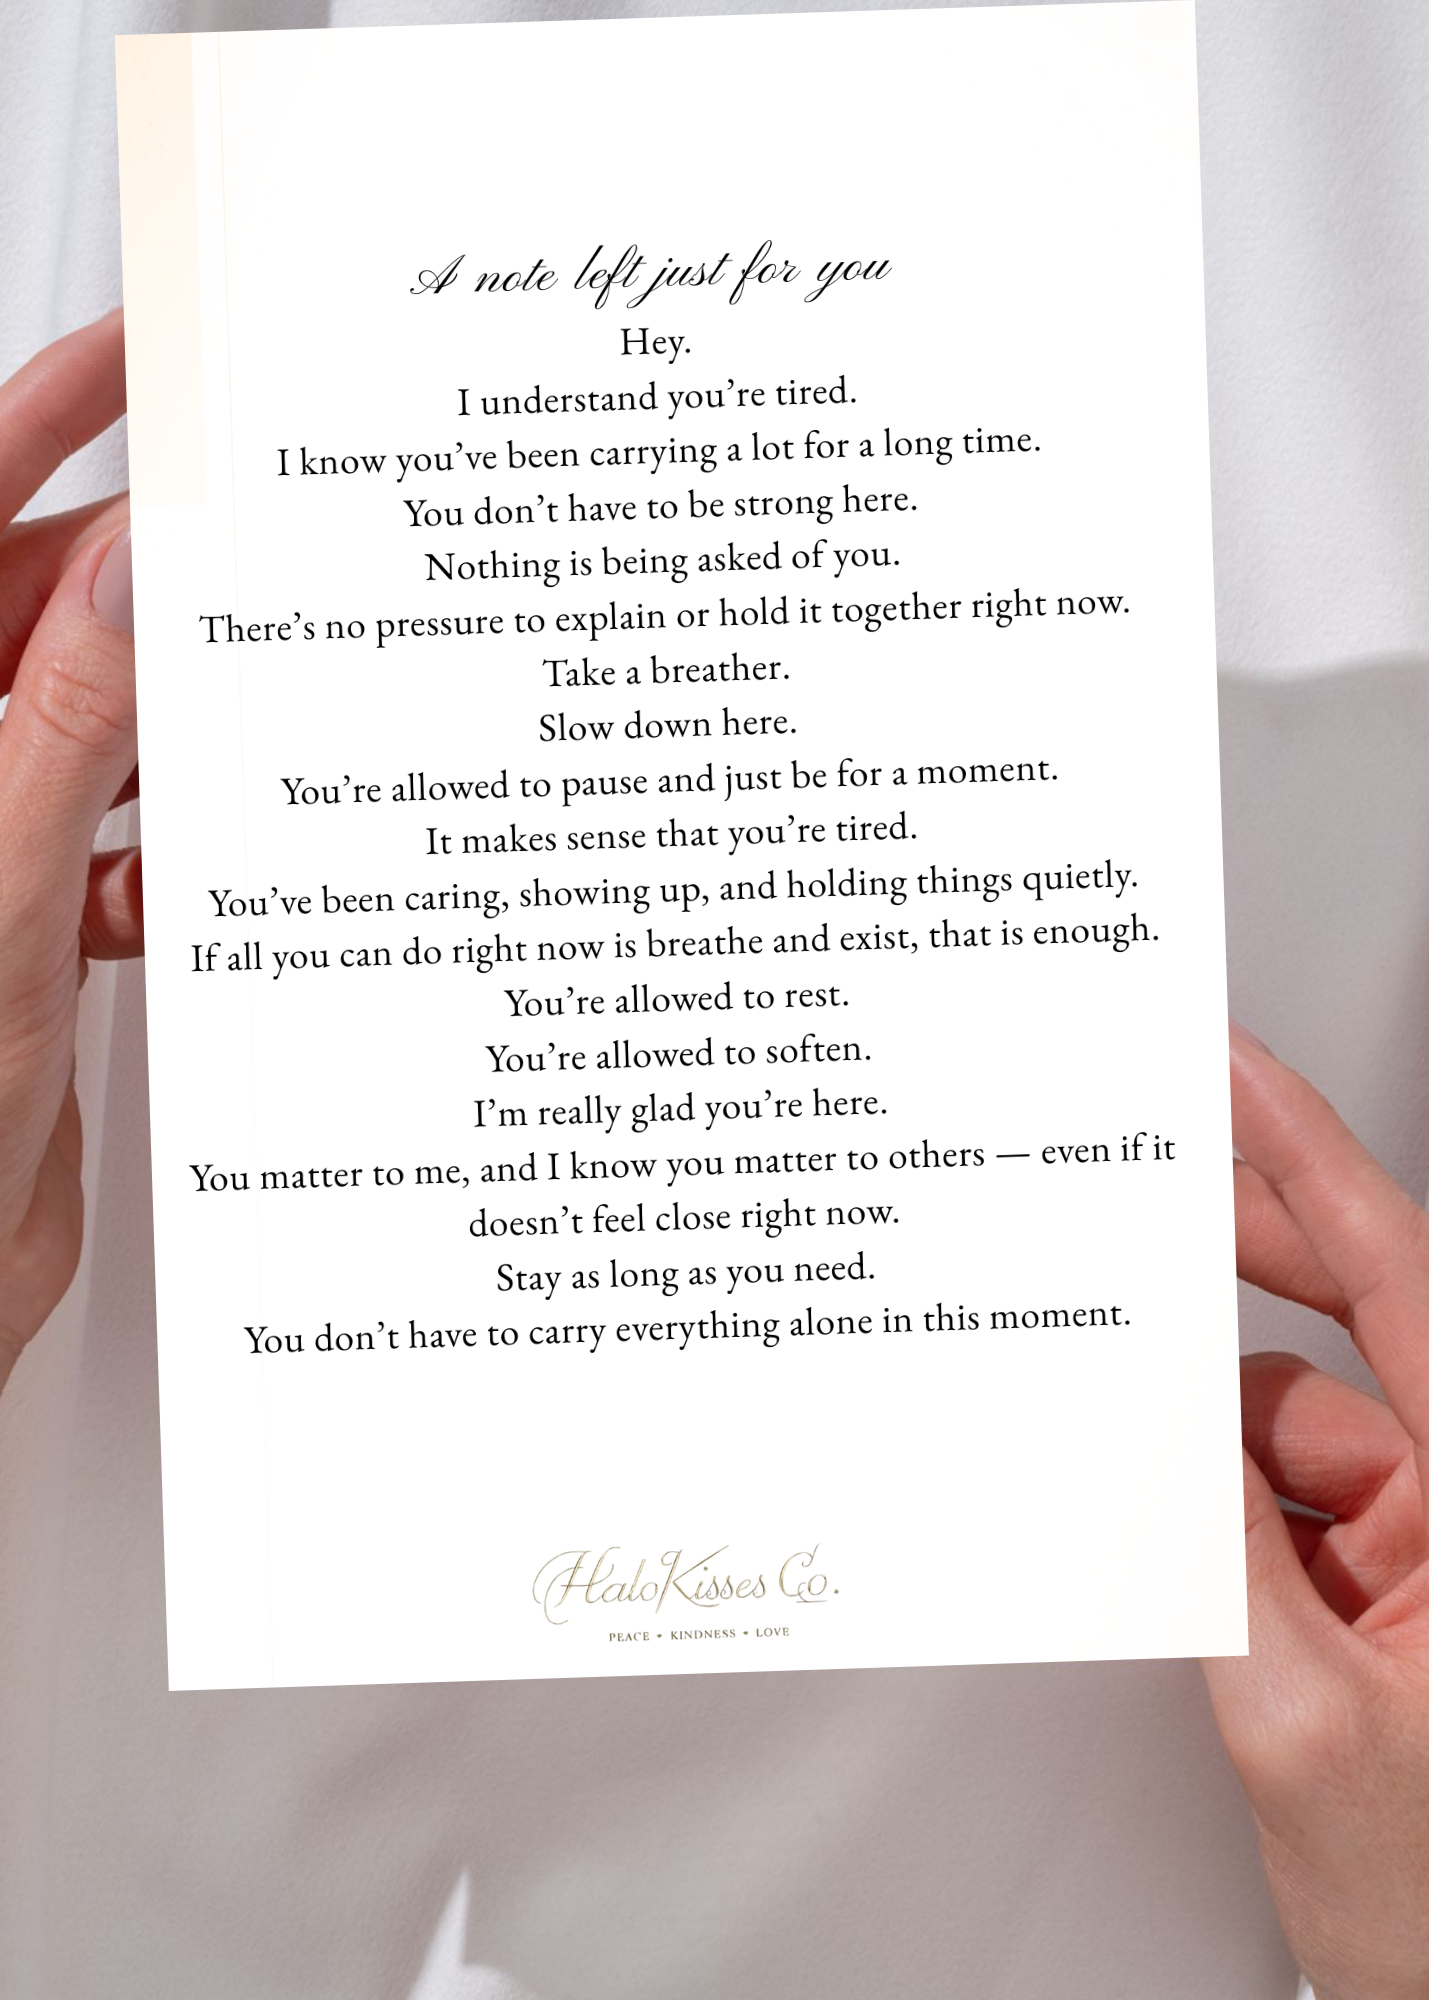 A note left just for you
Hey.
I understand you’re tired.
I know you’ve been carrying a lot for a long time.
You don’t have to be strong here.
Nothing is being asked of you.
There’s no pressure to explain or hold it together right now.
Take a breather.
Slow down here.
You’re allowed to pause and just be for a moment.
It makes sense that you’re tired.
You’ve been caring, showing up, and holding things quietly.
If all you can do right now is breathe and exist, that is enough.
You’re allowed to rest.
You’re allowed to soften.
I’m really glad you’re here.
You matter to me, and I know you matter to others — even if it
doesn’t feel close right now.
Stay as long as you need.
You don’t have to carry everything alone in this moment.
HaloKisses Co.
PEACE • KINDNESS • LOVE